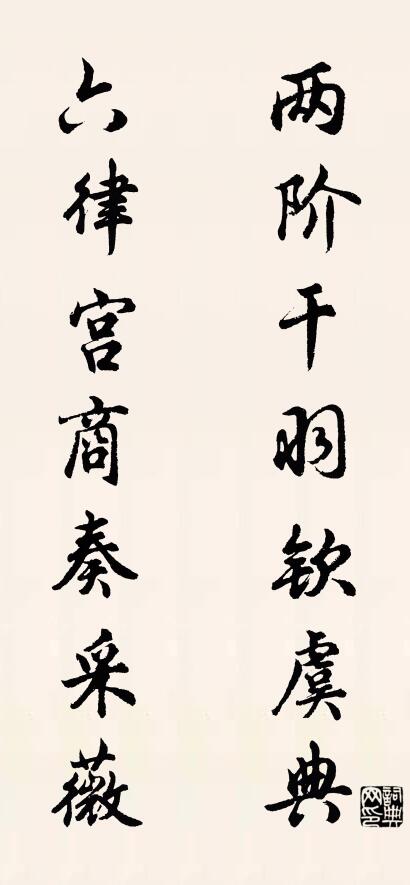 两阶干羽钦虞典
六律宫商奏采薇
詞典网印